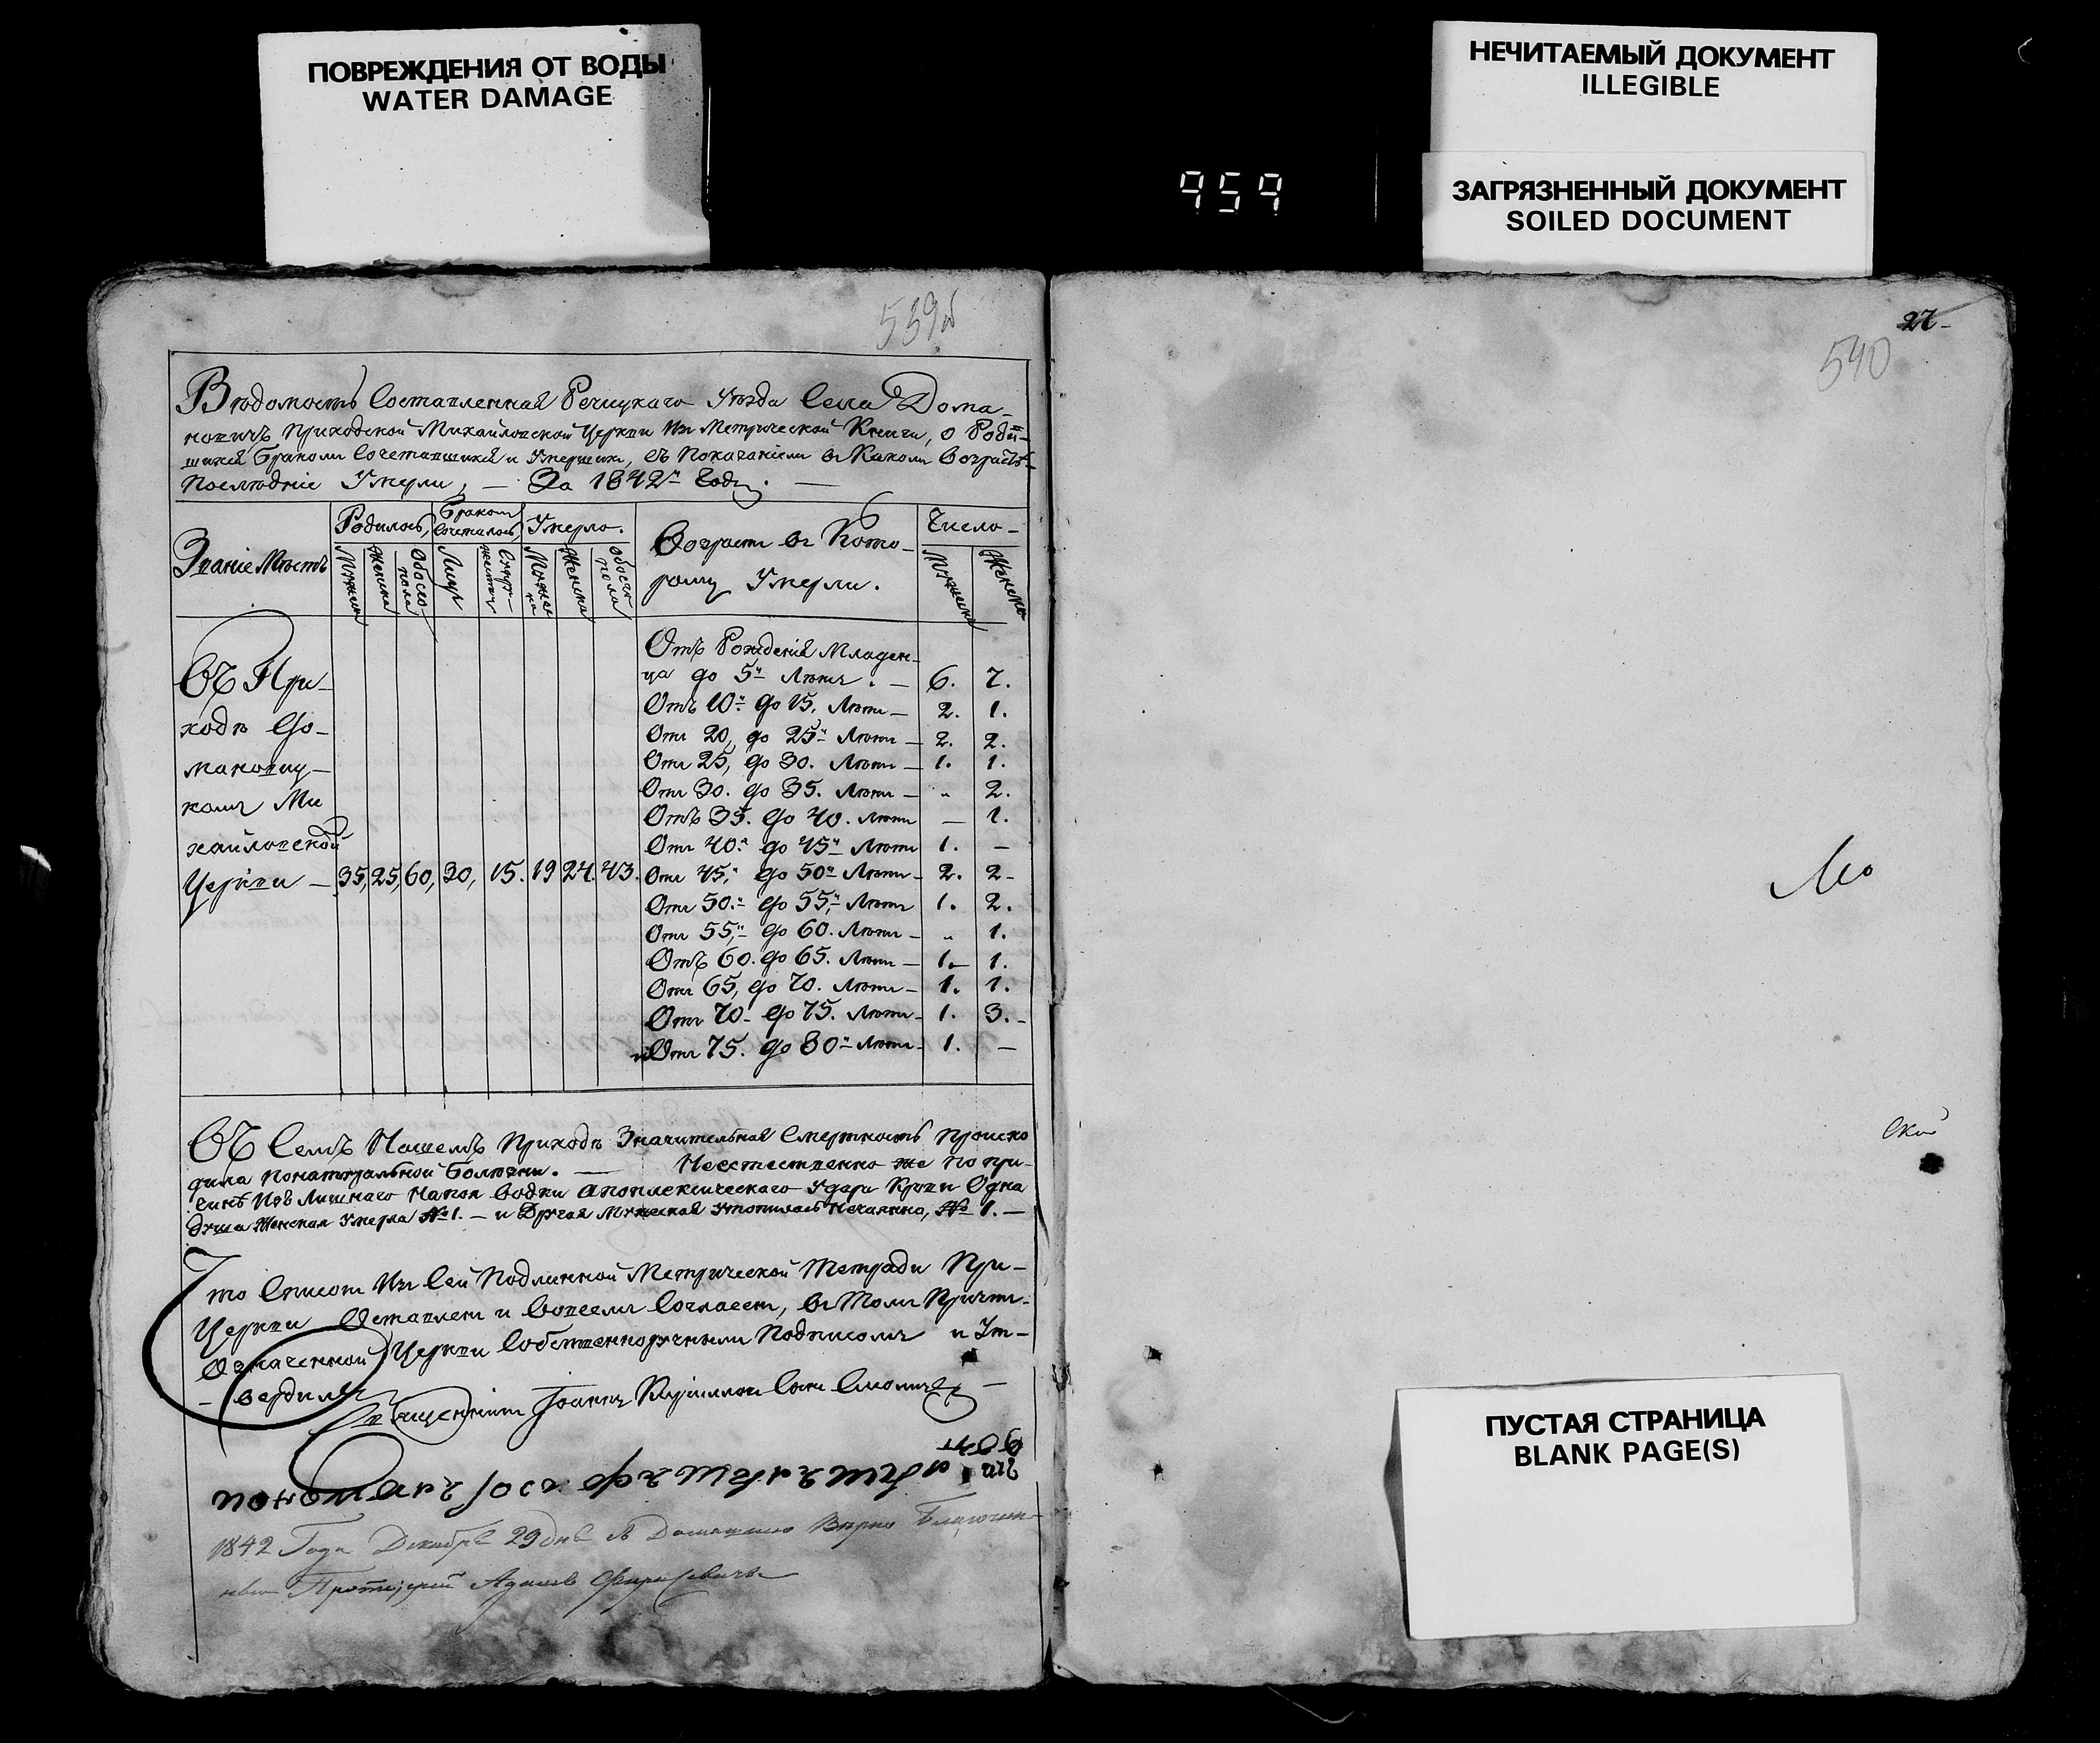 ПОВРЕЖДЕНИЯ ОТ ВОДЫ
WATER DAMAGE
НЕЧИТАЕМЫЙ ДОКУМЕНТ
ILLEGIBLE
ЗАГРЯЗНЕННЫЙ ДОКУМЕНТ
SOILED DOCUMENT
959
539
Вѣдомость Составленная Речицкаго Уѣзда Села Дома-
новичъ Приходской Михайловской Церкви Изъ Метрической Книги, о Роди-
шихся Бракомъ Сочетавшихся и Умершихъ, съ Показаніемъ въ Какомъ Возрастѣ
Послѣдніе Умерли, — За 1842й Годъ. —
Званіе Мѣстъ
Родилось,
Бракомъ Сочеталось,
Умерло.
Возрастъ въ Кото-
ромъ Умерли.
Число-
Мужска
Женска
Обоего пола
Лицъ
Супружествъ
Мужска
Женска
Обоего пола
Мужска
Женска
Отъ Рожденія Младен-
ца до 5и Лѣтъ. — 6. 7.
Отъ 10и до 15. Лѣтъ — 2. 1.
Отъ 20, до 25и Лѣтъ — 2. 2.
Отъ 25, до 30. Лѣтъ — 1. 1.
Отъ 30. до 35. Лѣтъ — „ 2.
Отъ 35. до 40. Лѣтъ — 1.
Отъ 40.и до 45и Лѣтъ 1. —
Отъ 45,и до 50и Лѣтъ — 2. 2-
Отъ 50.и до 55,и Лѣтъ 1. 2.
Отъ 55,и до 60. Лѣтъ — „ 1.
Отъ 60. до 65. Лѣтъ — 1. 1.
Отъ 65, до 70. Лѣтъ — 1. 1.
Отъ 70- до 75. Лѣтъ — 1. 3.-
и Отъ 75. до 80и Лѣтъ — 1. —
Въ При-
ходѣ До-
мановиц-
комъ Ми
хайловской
Церкви — 35, 25, 60, 30, 15. 19 24. 43.
Въ Семъ Нашемъ Приходѣ Значительная Смертность Происхо
дила Понатуральной Болѣзни. — Неестественно же по при-
чинѣ Изъ Лишняго Напоя Водки Апоплексическаго Удара Крови Одна
душа Женская Умерла № 1. — и Другая Мужеская Утопилась Нечаянно, № 1. —
Что Списокъ Изъ Сей Подлинной Метрической Тетради При-
Церкви Оставленъ и Вовсемъ Согласенъ, въ Томъ Причтъ
Означенной Церкви Собственноручнымъ Подписомъ и Ут-
- вердилъ
Священникъ Іоаннъ Сынъ
1842 Года Декабря 29 дня Вѣрно Благочин-
Протоіерей Адамъ
27-
540
Мо
ской
ПУСТАЯ СТРАНИЦА
BLANK PAGE(S)